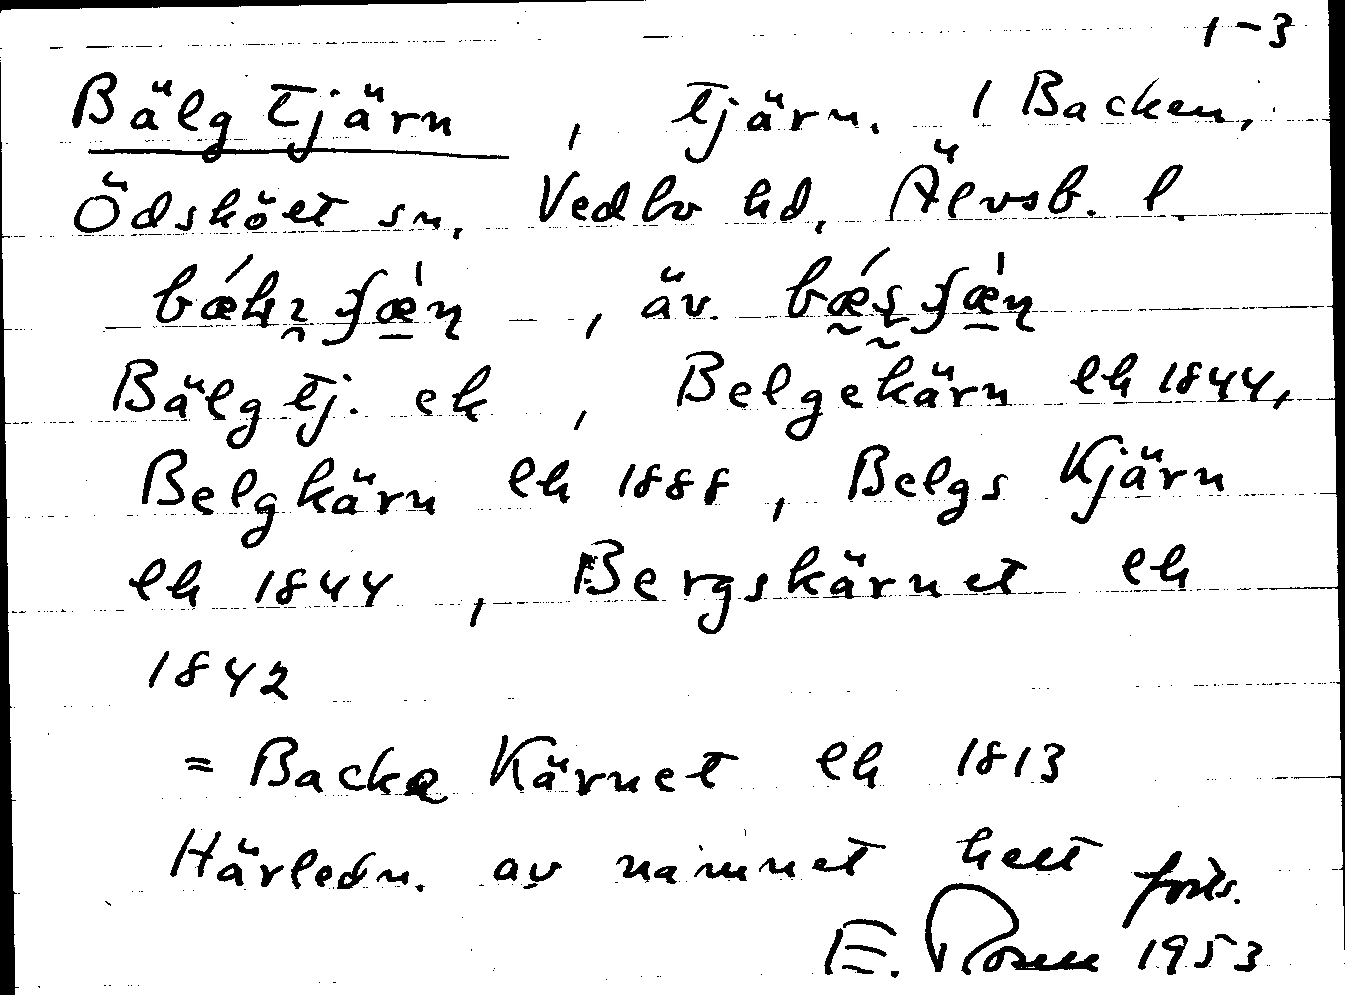 1-3
Bälgtjärn, tjärn. 1 Backen,
Ödsköлt sn, Vedbo hd, Älvsb. l.
, äv.
Bälgtj. ek, Belgekärn lh 1844,
Belgkärn lh 1888, Belgs Kjärn
lh 1844, Bergskärnet lh
1842
= Backe Kärnet lh 1813
Härledn. av namnet helt
forts.
E. Rosen 1953